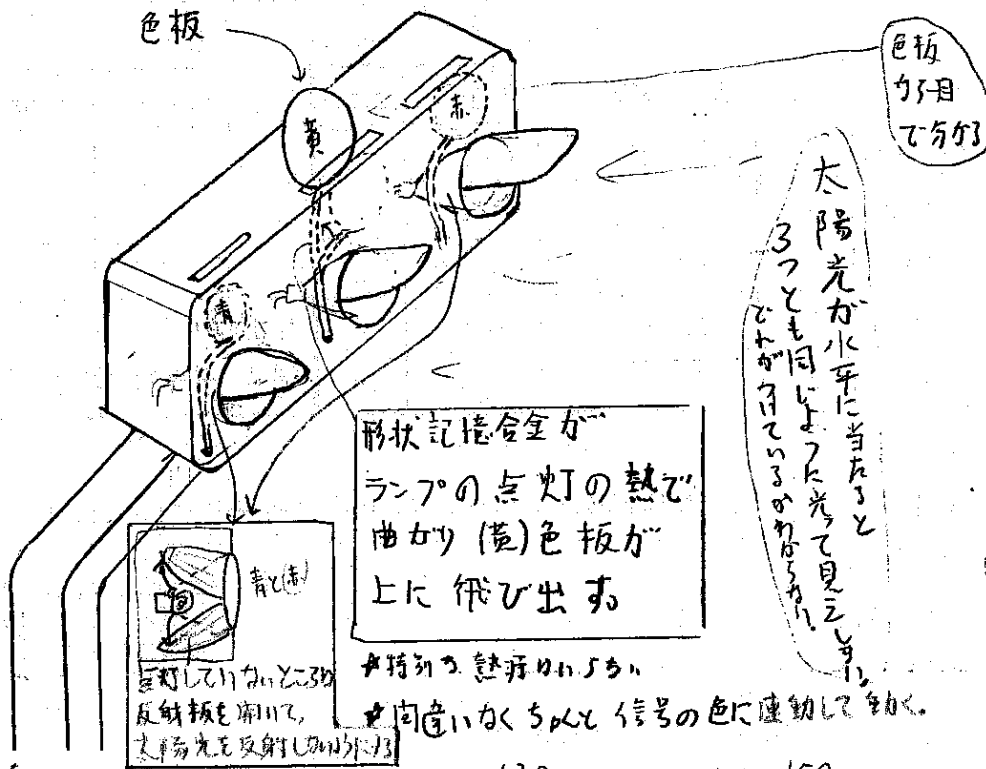 色板
黄
赤
青
色板
が3目
で分かる
太陽光が水平に当たると
3つとも同じように光って見えてしまい、
どれがつけているかわからない。
形状記憶合金が
ランプの点灯の熱で
曲がり(黄)色板が
上に飛び出す。
青と(赤)
点灯していないところは
反射板を開いて、
太陽光を反射しないようにする
*特別な熱源はいらない
*間違いなくちゃんと信号の色に連動して動く。